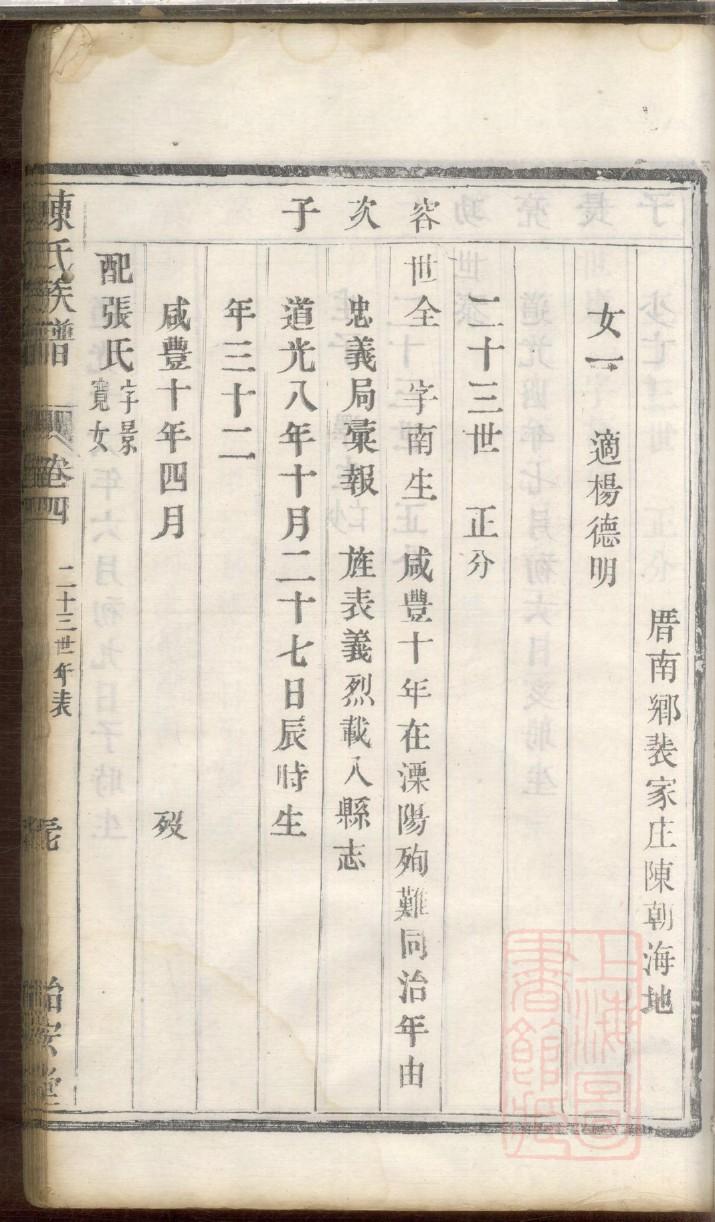 厝南鄉裴家庄陳朝海地
女一 適楊德明
二十三世 正分
容 世全 字南生 咸豐十年在溧陽殉難同治年由
次 忠義局彙報 旌表義烈載入縣志
子 道光八年十月二十七日辰時生
年三十二
咸豐十年四月 歿
配張氏 字景寬女
陳氏族譜 卷四 二十三世年表 詒安堂
上海圖書館藏